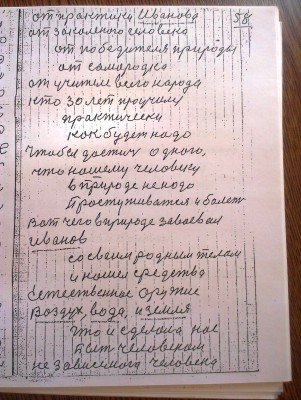 от практики Иванова
58
от закалного человека
от победителя природы
от самородка
от учителя всего народа
кто 30 лет проучил
практически
как будет надо
чтобы достич одного,
что нашему человеку
в природе не надо
простуживатся и болеть
Вот чего в природе завоевал
Иванов
со своим родным телом
и нашел средства
Естественное оружие
воздух, вода, и земля
что и сделала нас
быть человеком
независимого человека